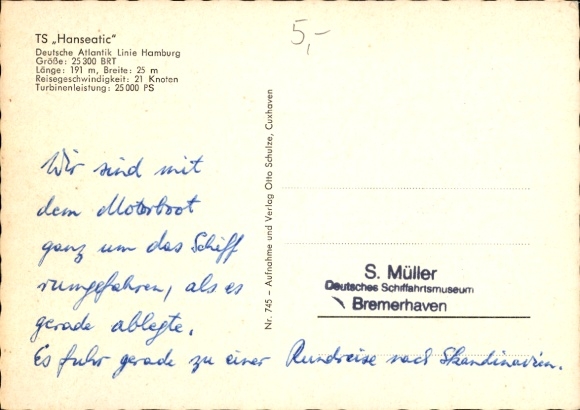 TS „Hanseatic“
Deutsche Atlantik Linie Hamburg
Größe: 25 300 BRT
Länge: 191 m, Breite: 25 m
Reisegeschwindigkeit: 21 Knoten
Turbinenleistung: 25 000 PS
5,-
Wir sind mit
dem Motorboot
ganz um das Schiff
rumgefahren, als es
gerade ablegte.
Es fuhr gerade zu einer Rundreise nach Skandinavien.
Nr. 745 – Aufnahme und Verlag Otto Schulze, Cuxhaven
S. Müller
Deutsches Schiffahrtsmuseum
Bremerhaven